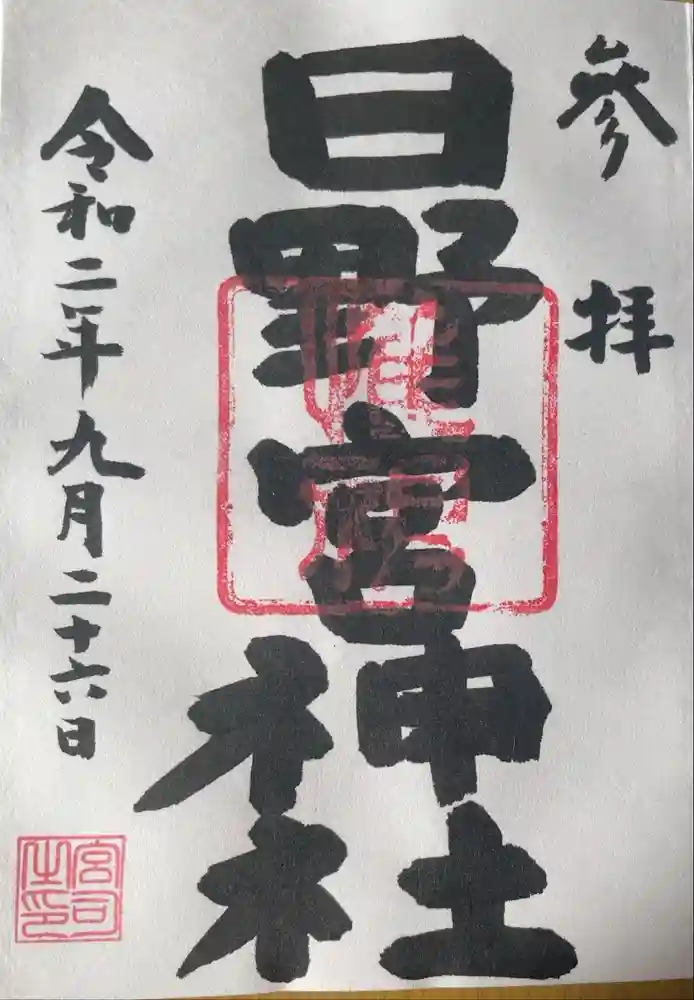 参拝
日野宮神社
令和二年九月二十六日
宮司
之印